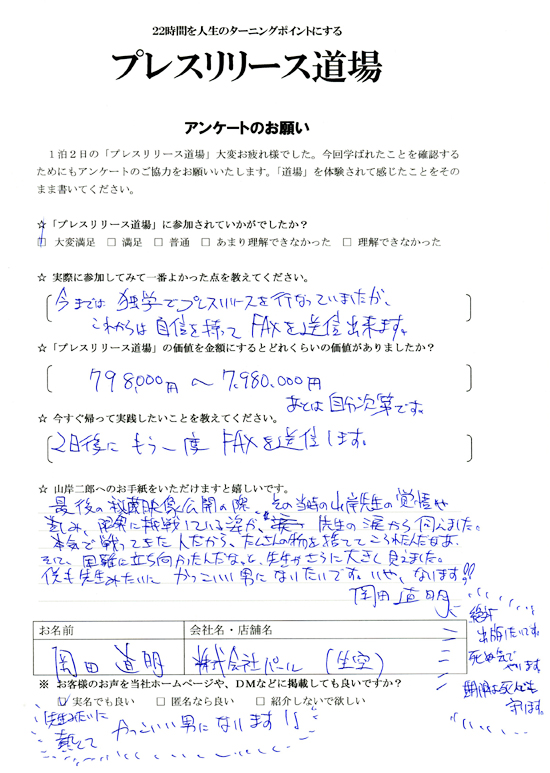 22時間を人生のターニングポイントにする
プレスリリース道場
アンケートのお願い
1泊2日の「プレスリリース道場」大変お疲れ様でした。今回学ばれたことを確認する
ためにもアンケートのご協力をお願いいたします。「道場」を体験されて感じたことをその
まま書いてください。
☆「プレスリリース道場」に参加されていかがでしたか?
□ 大変満足 □ 満足 □ 普通 □ あまり理解できなかった □ 理解できなかった
☆ 実際に参加してみて一番よかった点を教えてください。
今までは 独学でプレスリリースを行なっていましたが、
これからは自信を持って FAXを送信出来ます。
☆「プレスリリース道場」の価値を金額にするとどれくらいの価値がありましたか?
798,000円 〜 7,980,000円
あとは自分次第です。
☆ 今すぐ帰って実践したいことを教えてください。
2日後に もう一度 FAXを送信します。
☆ 山岸二郎へのお手紙をいただけますと嬉しいです。
最後の秘蔵映像公開の際、その当時の山岸先生の覚悟や
苦しみ、開発に挑戦している姿が、先生の涙から伺えました。
本気で戦ってきた人だから、たくさんの物を捨ててこられたんだなぁ、
そして、困難に立ち向かったんだな、と、先生がさらに大きく見えました。
僕も先生みたいに かっこいい男になりたいです。いや、なります!!
岡田 道明
絶対
出版したいです。
死ぬ気で
やります
期限は死んでも
守ります。
お名前 会社名・店舗名
岡田 道明 株式会社パール (生空)
※ お客様のお声を当社ホームページや、DMなどに掲載しても良いですか?
□ 実名でも良い □ 匿名なら良い □ 紹介しないで欲しい
先生みたいに
熱くて かっこいい男になります!!